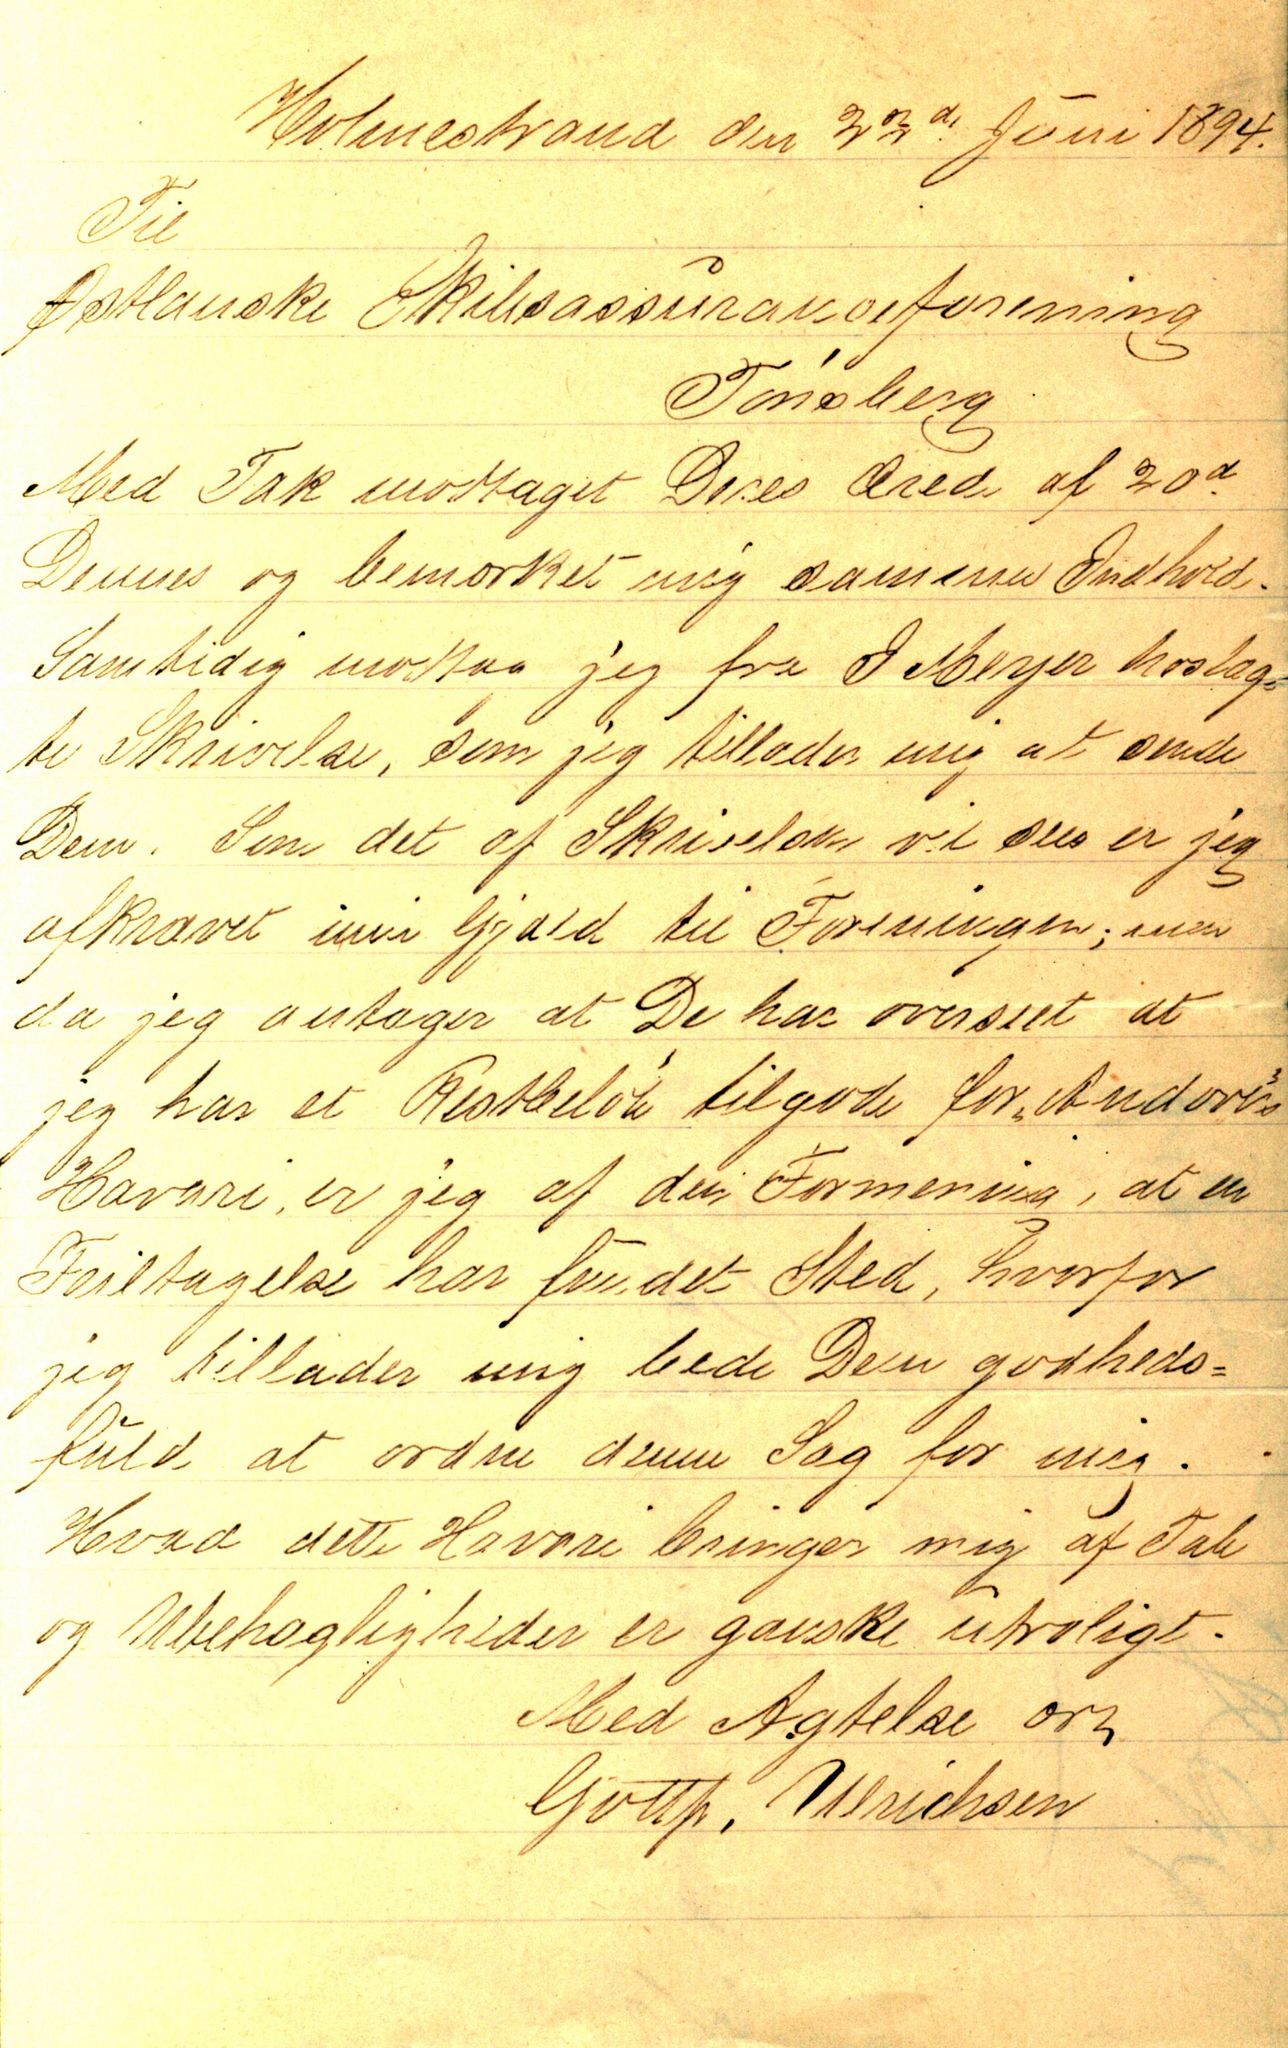 Holmestrand den 22d. Juni 1894.
Til
Østlanske Skibsassuranceforening
Tönsberg
Med Tak mottaget Deres Ærede af 20d.
Dennes og bemærket mig sammes Indhold.
Samtidig mottog jeg fra J Meyer hoslag-
te Skrivelse, som jeg tillader mig at sende
Dem. Som det af Skrivelsen vil sees er jeg
afkrævet min Gjæld til Foreningen; men
da jeg antager at De har overseet at
jeg har et Restbelöb tilgode for „Andovers"
Havari, er jeg af den Formening, at en
Feiltagelse har fundet Sted, hvorfor
jeg tillader mig bede Dem godheds=
fuld at ordne denne Sag for mig.
Hvad dette Havari bringer mig af Tab
og Ubehagligheder er ganske utroligt.
Med Agtelse
Gottfr. Ulrichsen